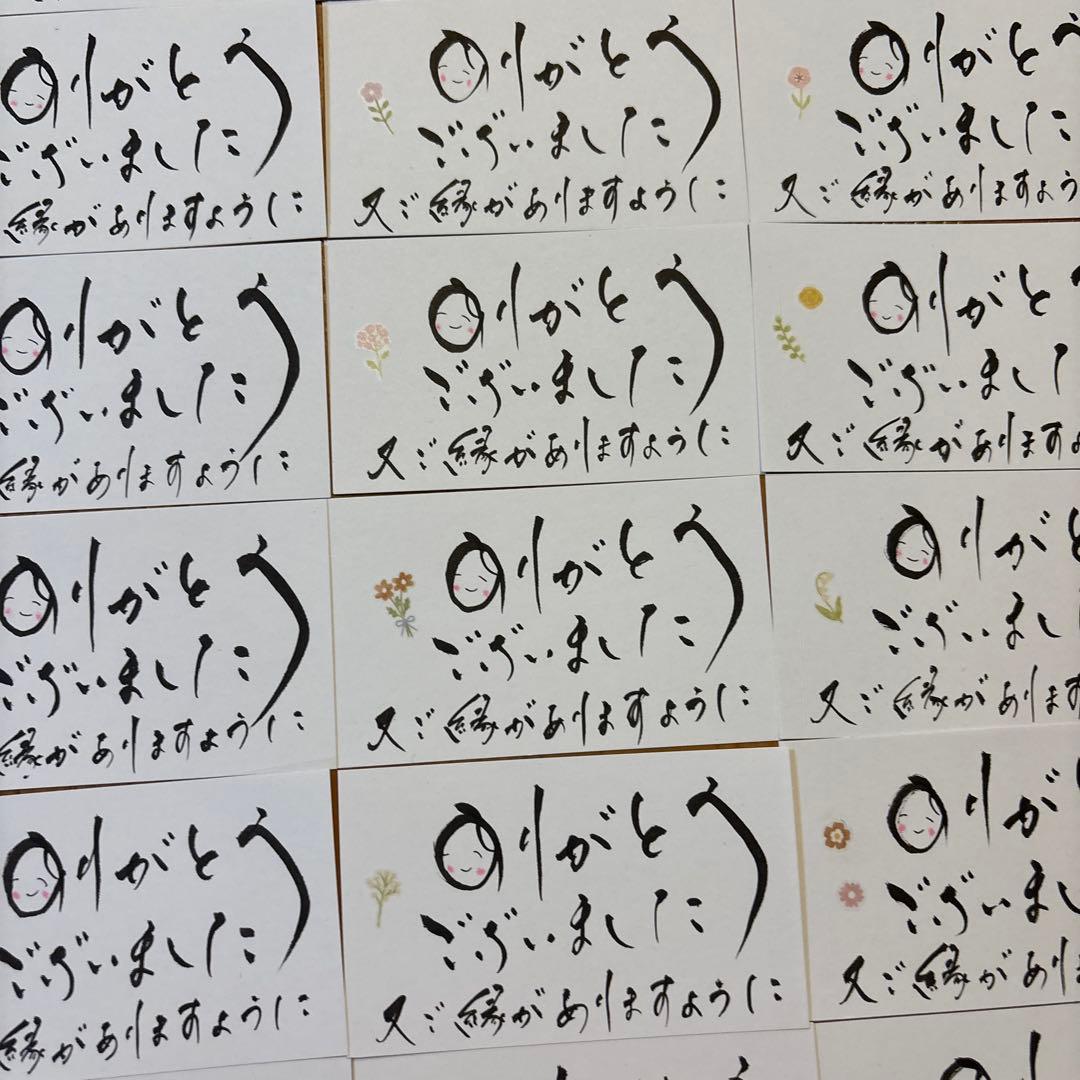 ありがとう
ございました
縁がありますように
ありがとう
ございました
又ご縁がありますように
ありがとう
ございました
又ご縁がありますよう
ありがとう
ございました
縁がありますように
ありがとう
ございました
又ご縁がありますように
ありがと
ございまし
又ご縁があります
ありがとう
ございました
縁がありますように
ありがとう
ございました
又ご縁がありますように
ありが
ございまし
又ご縁があります
ありがとう
ございました
縁がありますように
ありがとう
ございました
又ご縁がありますように
ありが
ございま
又ご縁があり